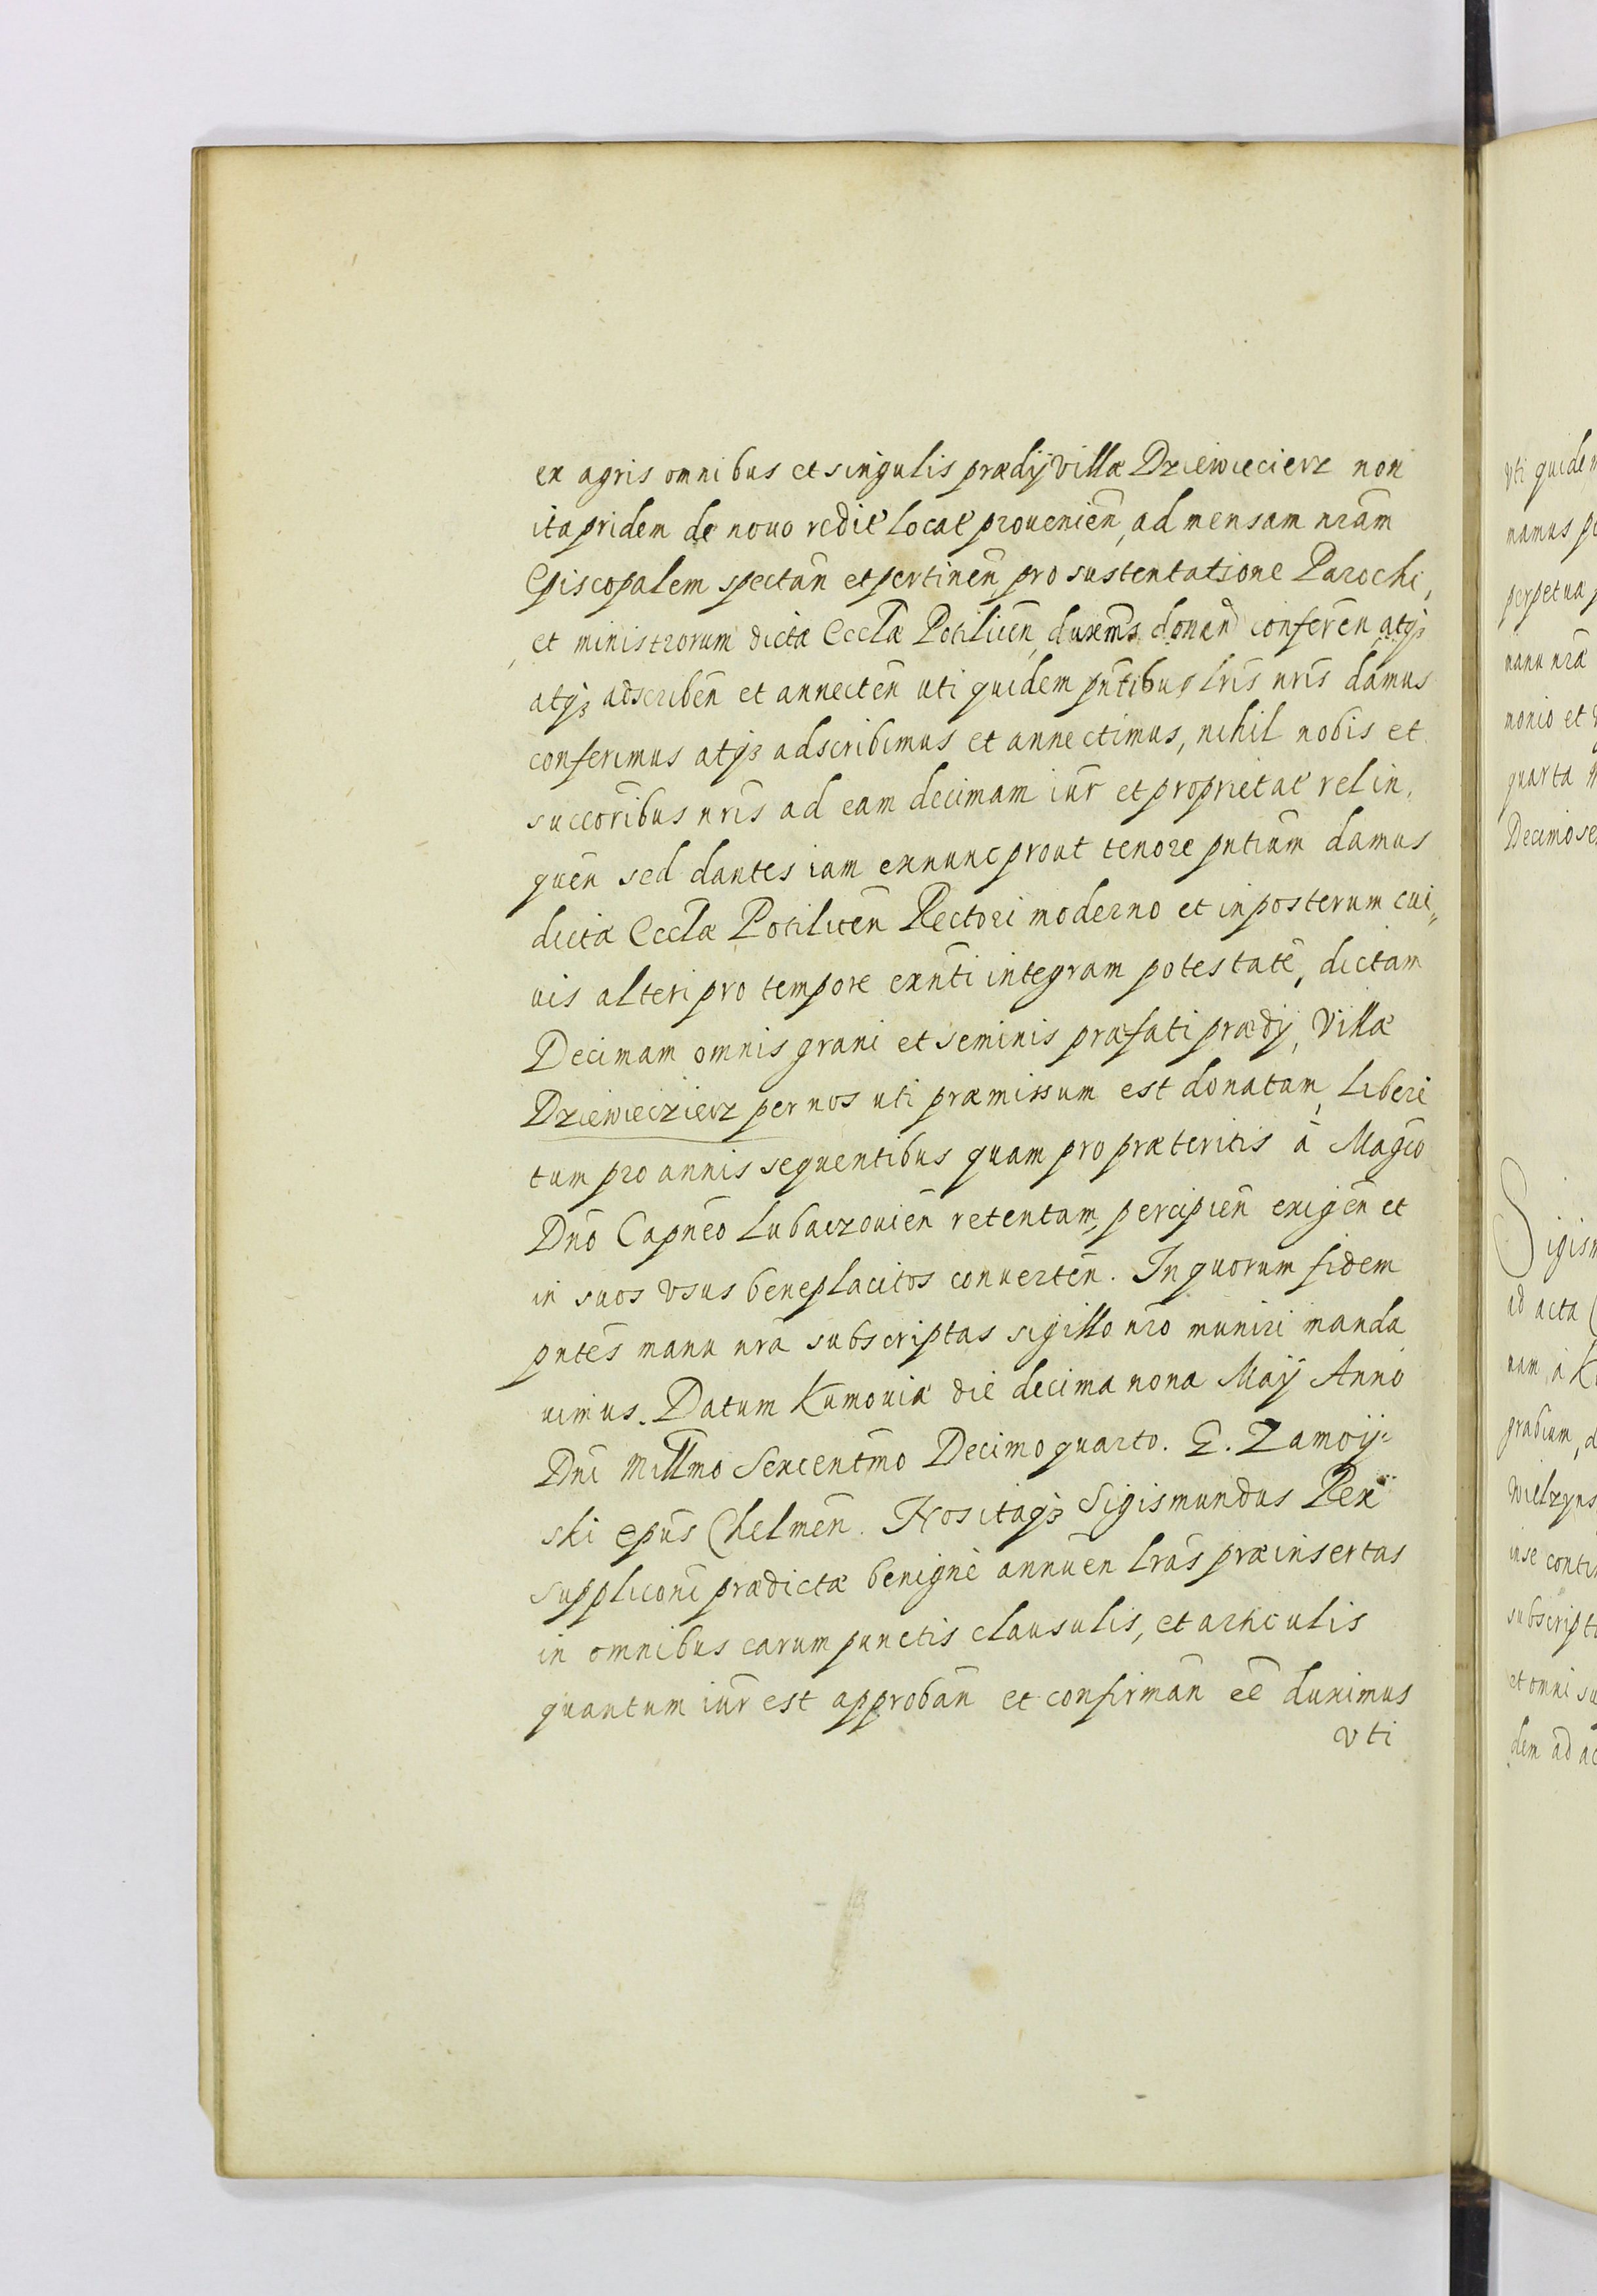 ex agris omnibus et singulis prædij villæ Dziewiecierz non
ita pridem de novo redie locat̃ provenien̄, ad mensam nrãm
Episcopalem spectan̄ et pertinen̄, pro sustentatione Parochi,
et ministrorum dictæ Eccl̃æ Potilicen̄, duxem̃s donan̄ conferen̄ atq̃
atq̃ adscriben̄ et annecten̄ uti quidem pñtibus l̃ris nr̃is damus
conferimus atq̃ adscribimus et annectimus, nihil nobis et
succorĩbus nr̃is ad eam decimam iur̃ et proprietat̃ relin,
quen̄ sed dantes iam exnunc prout tenore pñtium damus
dictæ Eccl̃æ Potilicen̄ Rectori moderno et in posterum cui,,
vis alteri pro tempore exñti integram potestatẽ, dictam
Decimam omnis grani et seminis præfati prædij, Villæ
Dziewieczierz per nos uti præmissum est donatam, Liberè
tum pro annis sequentibus quam pro præteritis à Magc̃o
Dnõ Capneõ Lubaczovien̄ retentam, percipien̄ exigen̄ et
in suos vsus beneplacitos converten̄. In quorum fidem
pñtes manu nrã subscriptas sigillo nrõ muniri manda,
vimus. Datum Kumoviæ die decima nona Maij Anno
Dnĩ Mill̃mo Sexcentm̃o Decimo quarto. G. Zamoij=
ski ep̃us Chelmen̄. Nos itaq̃ Sigismundus Rex
supplicoñi prædictæ benignè annuen̄ l̃ras præinsertas
in omnibus earum punctis clausulis, et articulis
quantum iur̃ est approban̄ et confirman̄ eẽ duximus
vti
vti quidem
namus
perpetuæ
manu nrã
monio et
quarta
Sigism
ad acta
nam à
gradium,
subscript
et omni su
dem ad ac